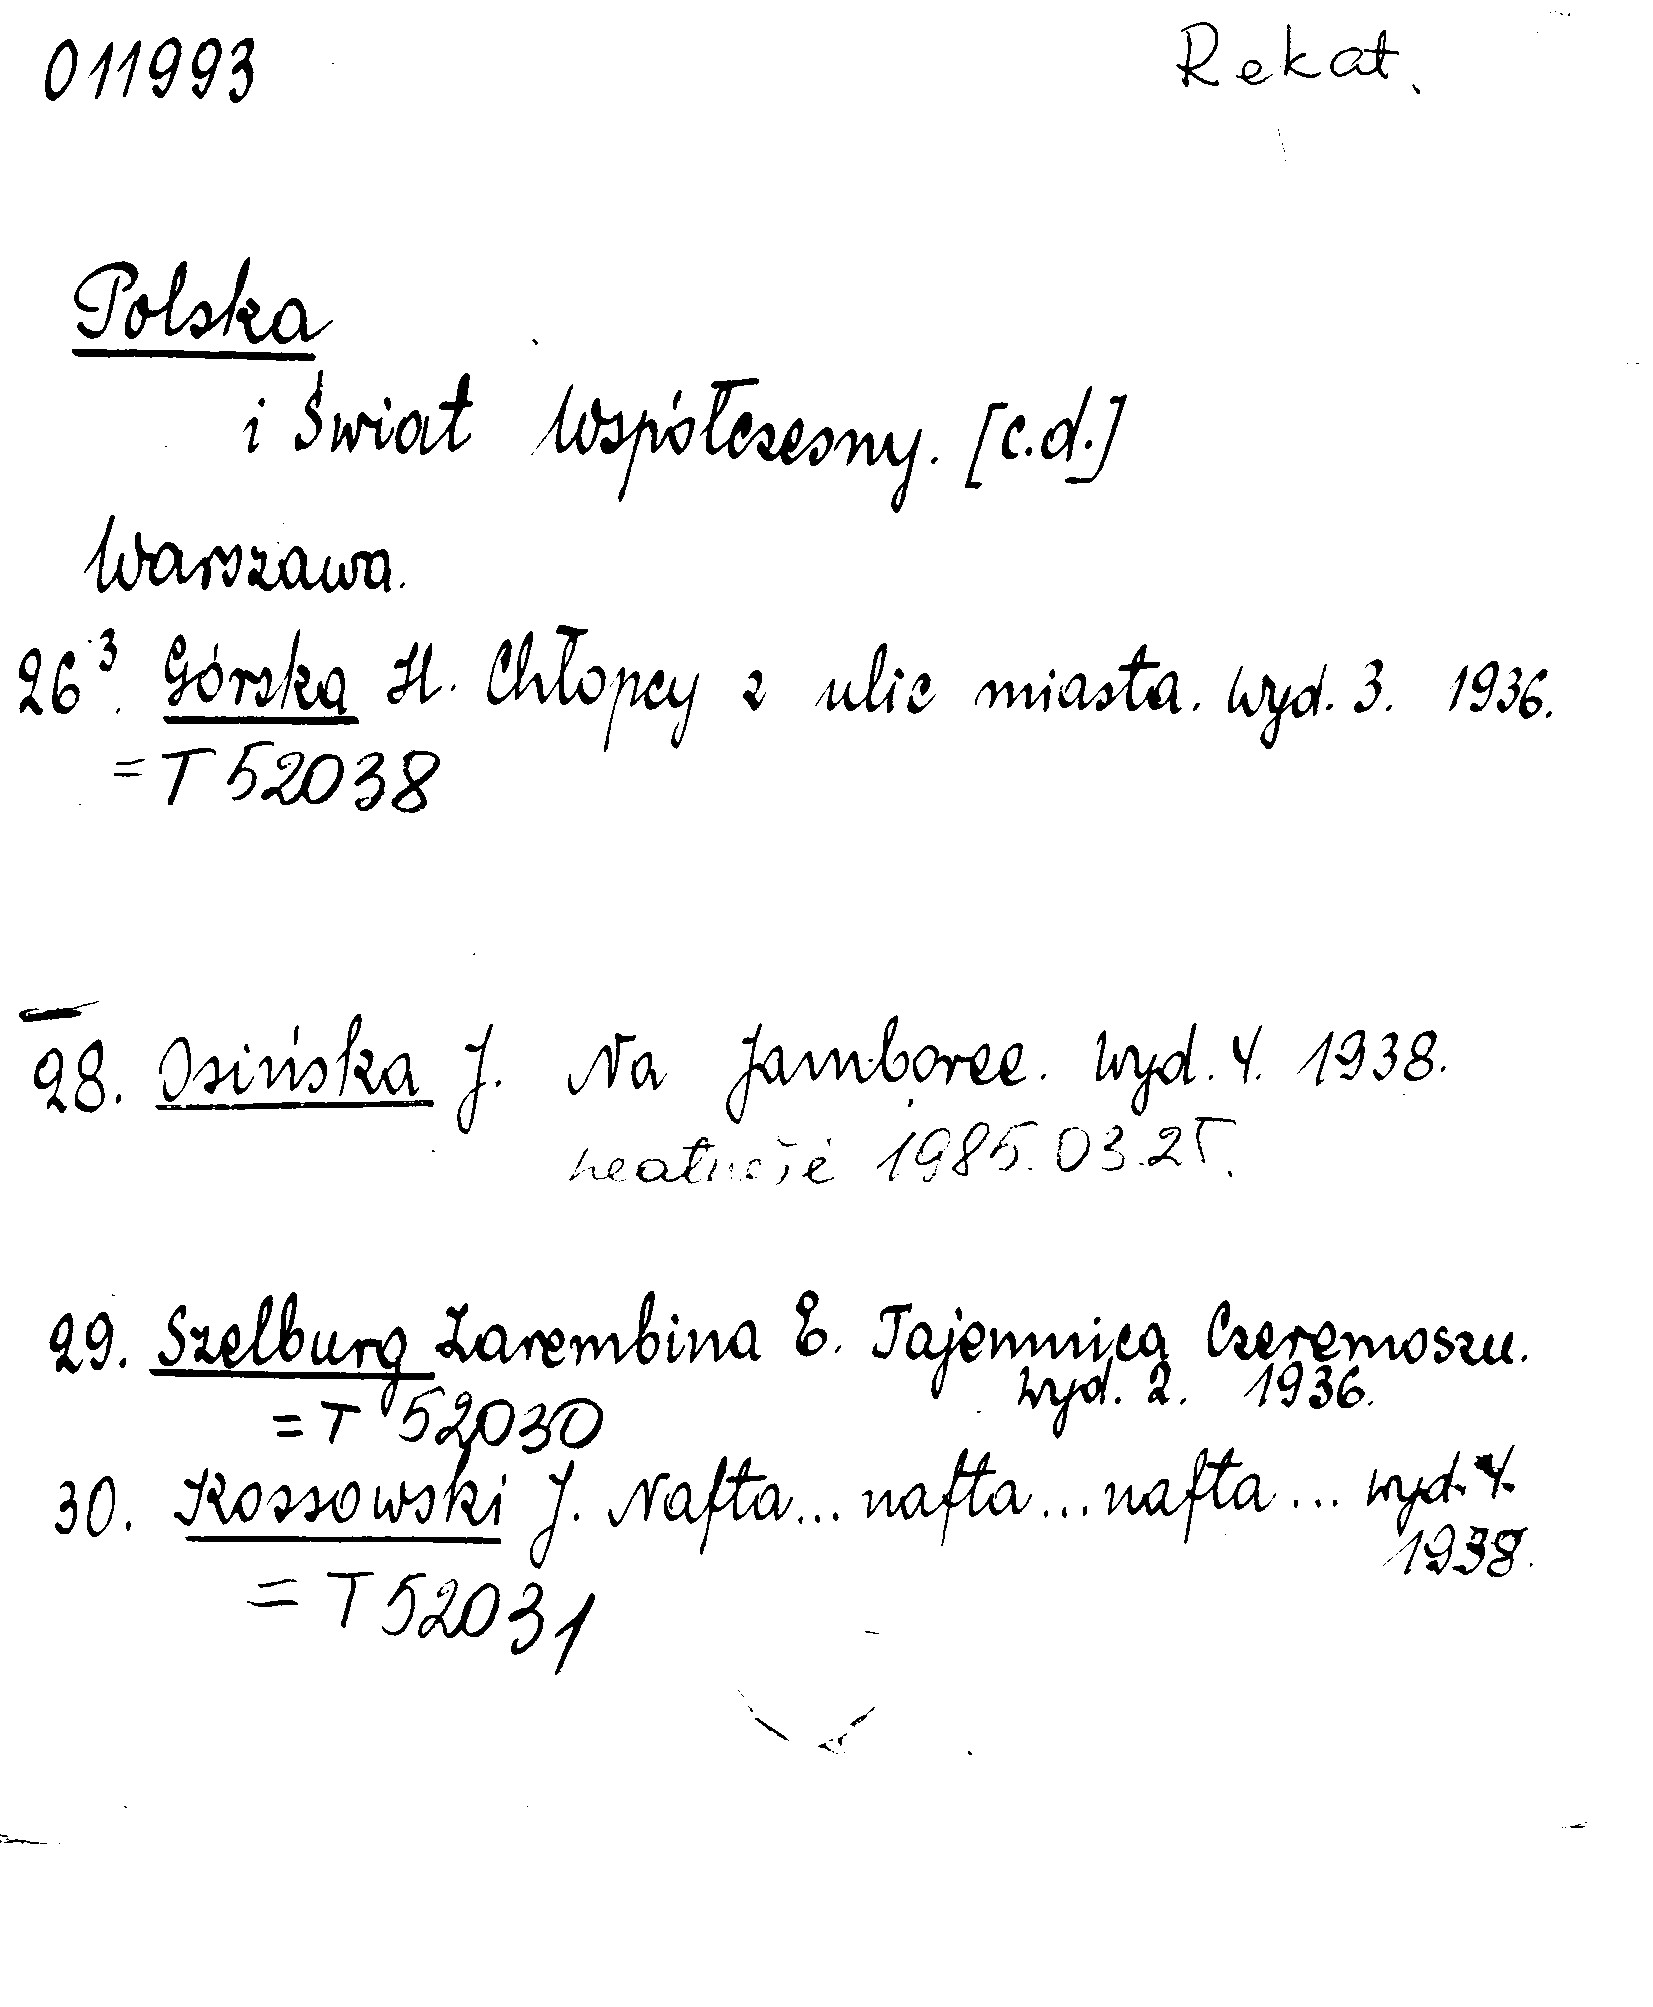 011993 Rekat.
Polska
i Świat Współczesny. [c.d.]
Warszawa.
26³. Górska H. Chłopcy z ulic miasta. wyd. 3. 1936.
= T 52038
28. Osińska J. Na Jamboree. wyd. 4. 1938.
1985.03.25.
29. Szelburg Zarembina E. Tajemnica Czeremoszu.
wyd. 2. 1936.
= T 52030
30. Kossowski J. Nafta... nafta... nafta... wyd. 4.
1938.
= T 52031